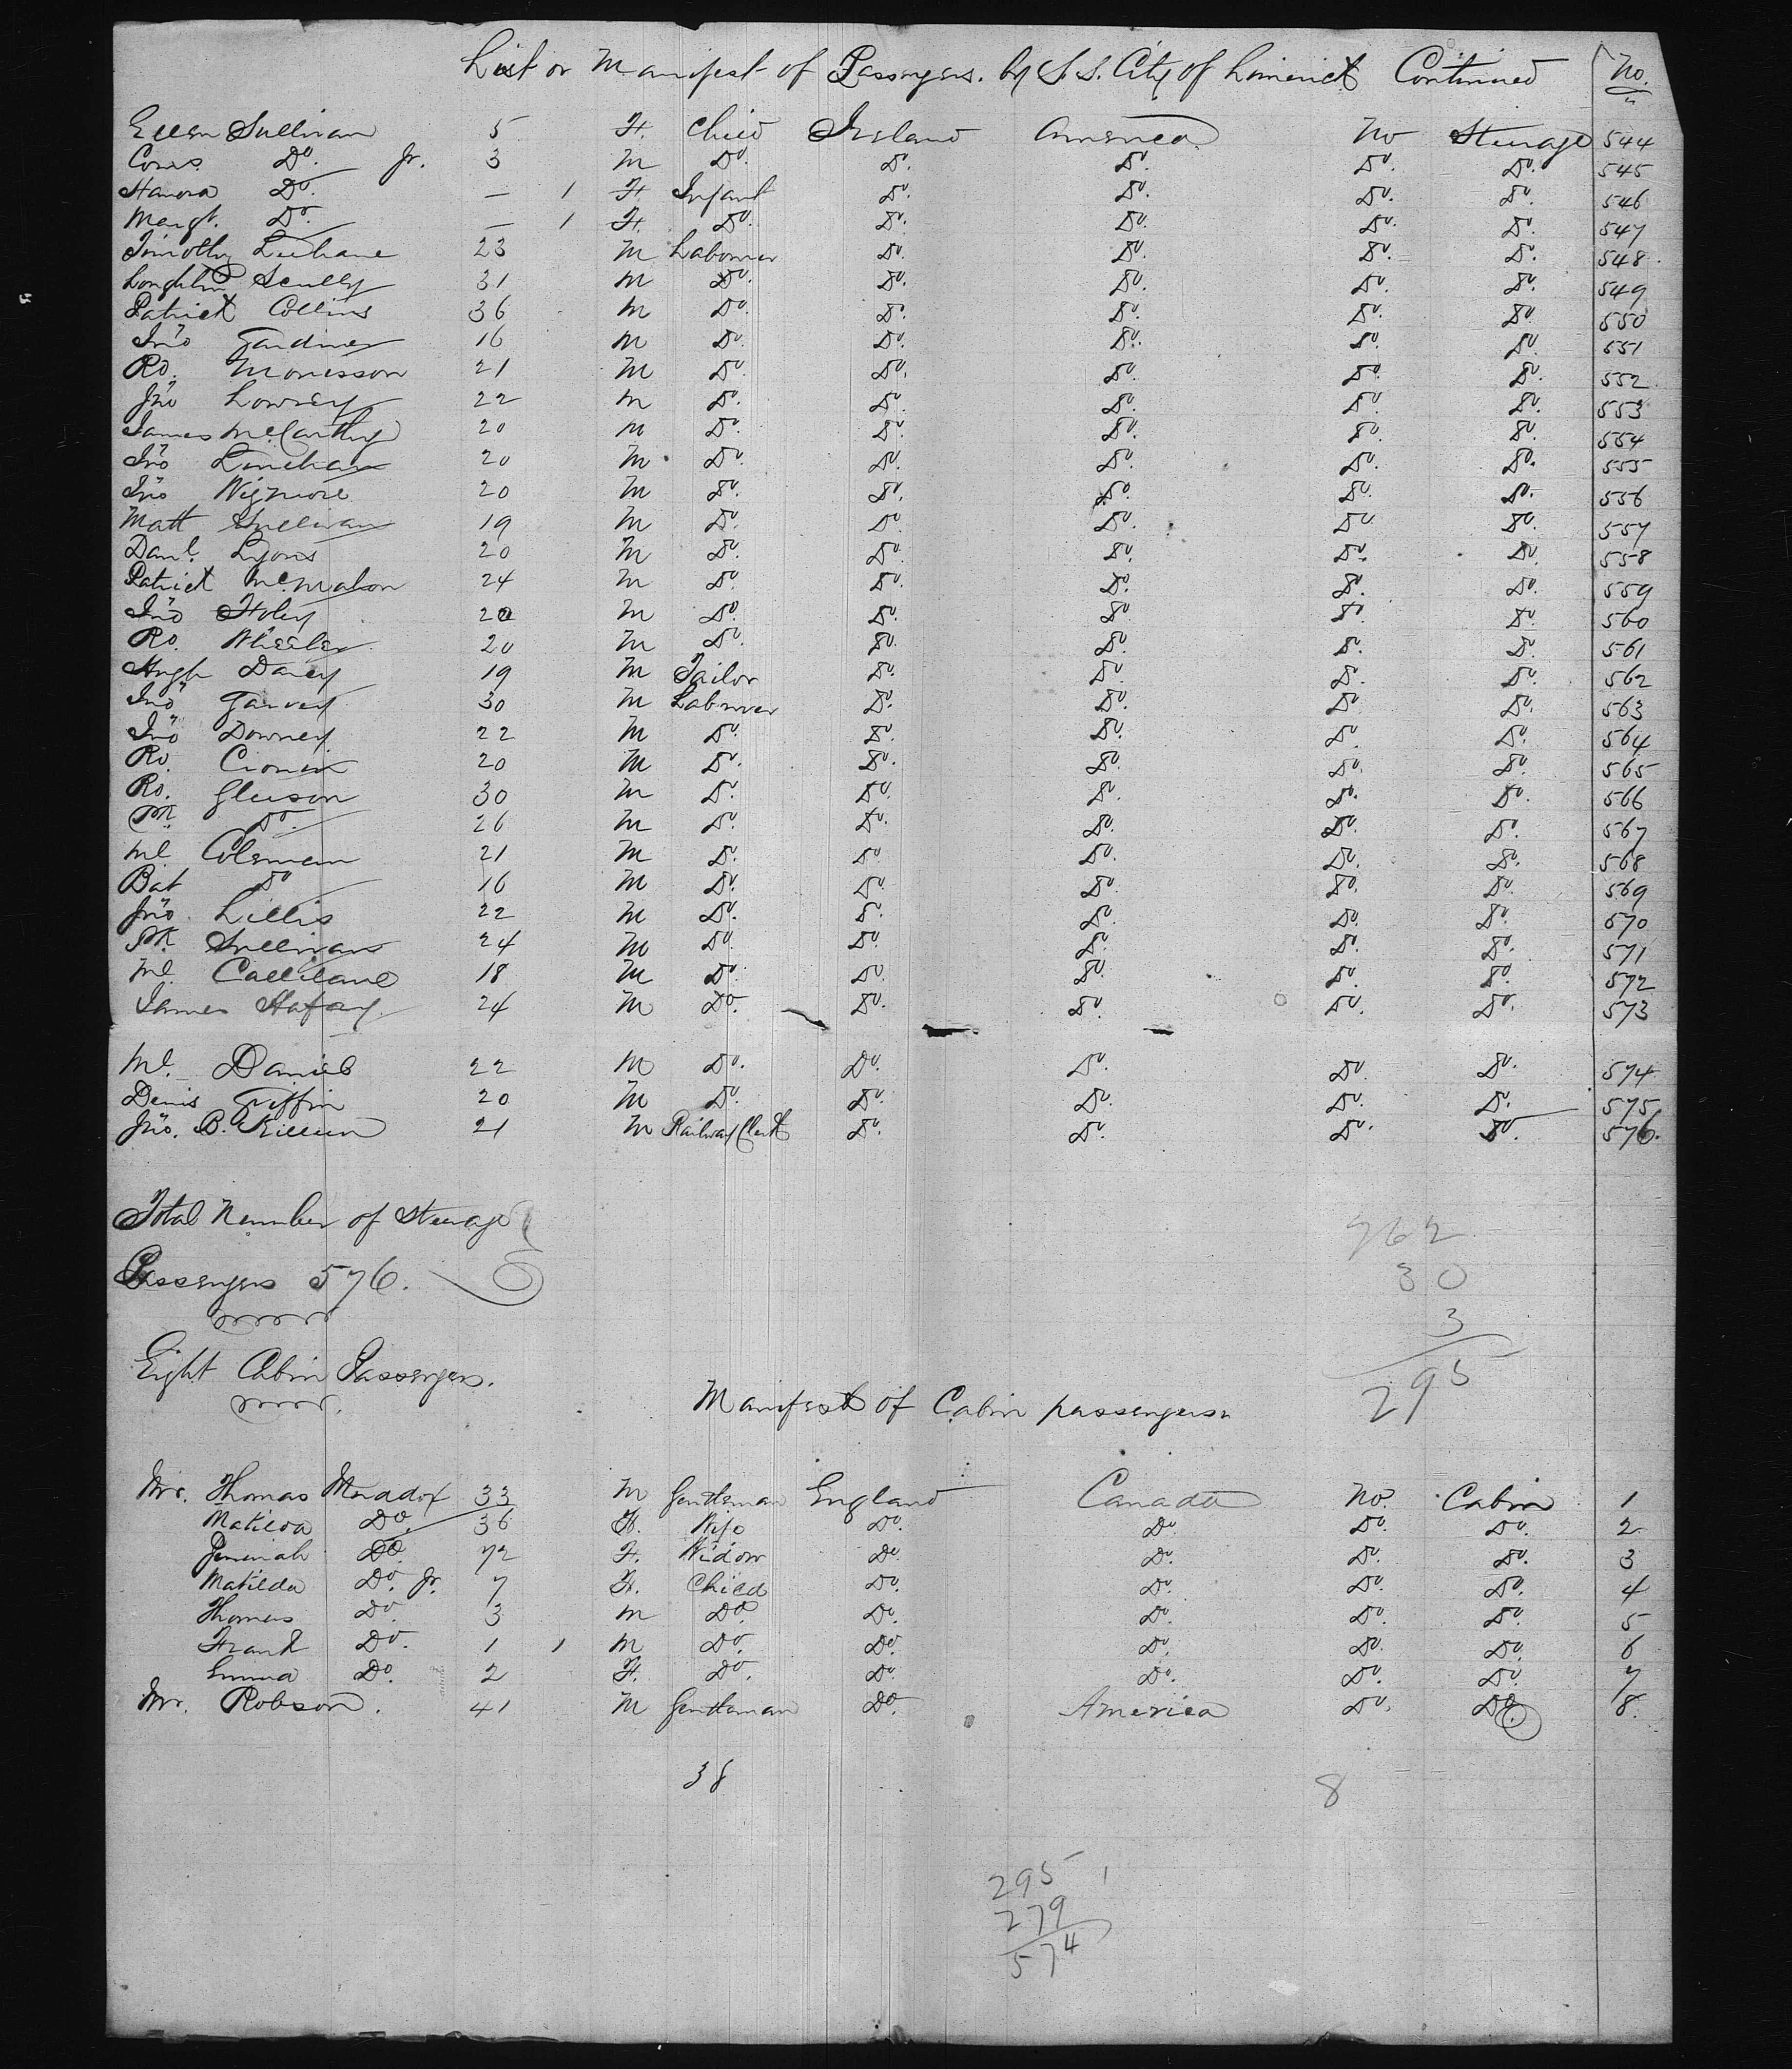 List or Manifest of Passengers. by S.S. City of Limerick Continued No.
Ellen Sullivan 5 F. Child Ireland America No Steerage 544
Corns. Do. Jr. 3 M Do. Do. Do. Do. Do. 545
Hanora Do. — 1 F. Infant Do. Do. Do. Do. 546
Margt. Do. — 1 F. Do. Do. Do. Do. Do. 547
Timothy Leehane 23 M Labourer Do. Do. Do. Do. 548
Loughlin Scully 31 M Do. Do. Do. Do. Do. 549
Patrick Collins 36 M Do. Do. Do. Do. Do 550
Jno Gardiner 16 M Do. Do. Do. Do. Do. 551
Ro. Monisson 21 M Do. Do. Do. Do. Do. 552
Jno Lowrey 22 M Do. Do. Do. Do. Do. 553
James McCarthy 20 M Do. Do. Do. Do. Do. 554
Jno Linehan 20 M Do. Do. Do. Do. Do. 555
Jno Wigmore 20 M Do. Do. Do. Do. Do. 556
Matt Sullivan 19 M Do. Do. Do. Do. Do. 557
Danl. Lyons 20 M Do. Do. Do. Do. Do. 558
Patrick McMahon 24 M Do. Do. Do. Do. Do. 559
Jno Foley 20 M Do. Do. Do. Do. Do. 560
Ro. Wheeler 20 M Do. Do. Do. Do. Do. 561
Hugh Darcy 19 M Tailor Do. Do. Do. Do. 562
Jno Garvey 30 M Labourer Do. Do. Do. Do. 563
Jno Downey 22 M Do. Do. Do. Do. Do. 564
Ro. Cronin 20 M Do. Do. Do. Do. Do. 565
Ro. Gleeson 30 M Do. Do. Do. Do. Do. 566
Pk. Do. 26 M Do. Do. Do. Do. Do. 567
Ml. Coleman 21 M Do. Do. Do. Do. Do. 568
Bat Do 16 M Do. Do. Do. Do. Do. 569
Jno. Lillis 22 M Do. Do. Do. Do. Do. 570
Pk. Sullivan 24 M Do. Do. Do. Do. Do. 571
Ml. 18 M Do. Do. Do. Do. Do. 572
James 24 M Do. Do. Do. Do. Do. 573
Ml. Daniels 22 M Do. Do. Do. Do. Do. 574
Denis Griffin 20 M Do. Do. Do. Do. Do. 575
Jno. B. Killeen 21 M Railway Clerk Do. Do. Do. Do. 576.
Total Number of Steerage
Passengers 576.
262
30
3
295
Eight Cabin Passengers.
Manifest of Cabin passengers
Mr. Thomas Maddox 33 M Gentleman England Canada No. Cabin 1
Matilda Do. 36 F. Wife Do. Do. Do. Do. 2
Jemimah Do. 72 F. Widow Do. Do. Do. Do. 3
Matilda Do. Jr. 7 F. Child Do. Do. Do. Do. 4
Thomas Do. 3 M Do. Do. Do. Do. Do. 5
Frank Do. 1 1 M Do. Do. Do. Do. Do. 6
Emma Do. 2 F. Do. Do. Do. Do. Do. 7
Mr. Robson. 41 M Gentleman Do. America Do. Do. 8.
38
8
295 1
279
574